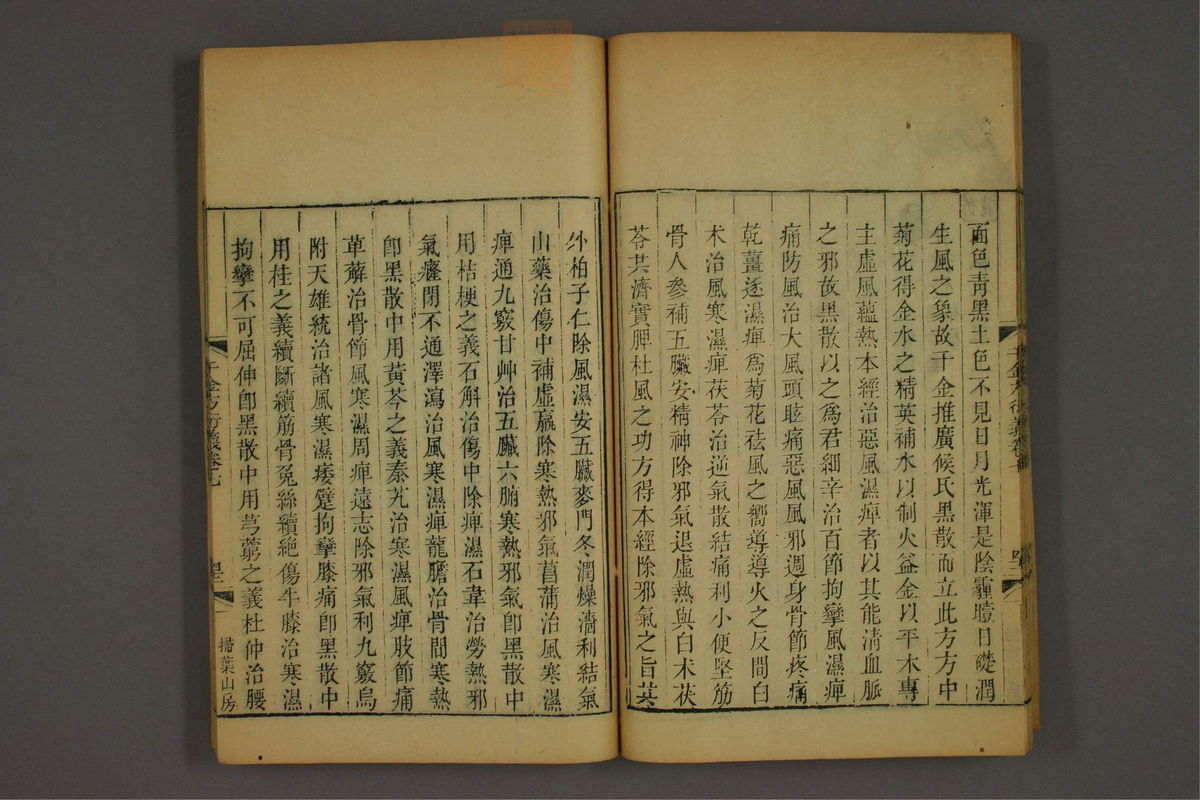 面色靑黑土色不見日月光渾是陰霾曀日礎潤
生風之象故千金推廣候氏黑散而立此方方中
菊花得金水之精英補水以制火益金以平木專
主虛風蘊熱本經治惡風濕痺者以其能清血脈
之邪故黑散以之爲君細辛治百節拘攣風濕痺
痛防風治大風頭眩痛惡風風邪週身骨節疼痛
乾薑逐濕痺爲菊花祛風之嚮導導火之反間白
术治風寒濕痺茯苓治逆氣散結痛利小便堅筋
骨人參補五臟安精神除邪氣退虛熱與白术茯
苓共濟實脾杜風之功方得本經除邪氣之旨其
外柏子仁除風濕安五臟麥門冬潤燥濇利結氣
山藥治傷中補虛羸除寒熱邪氣菖蒲治風寒濕
痺通九竅甘艸治五臟六腑寒熱邪氣卽黑散中
用桔梗之義石斛治傷中除痺濕石韋治勞熱邪
氣癃閉不通澤瀉治風寒濕痺龍膽治骨間寒熱
卽黑散中用黃芩之義秦艽治寒濕風痺肢節痛
萆薢治骨節風寒濕周痺遠志除邪氣利九竅烏
附天雄統治諸風寒濕痿躄拘攣膝痛卽黑散中
用桂之義續斷續筋骨菟絲續絶傷牛膝治寒濕
拘攣不可屈伸卽黑散中用芎藭之義杜仲治腰
千金方衍義卷十七
掃葉山房